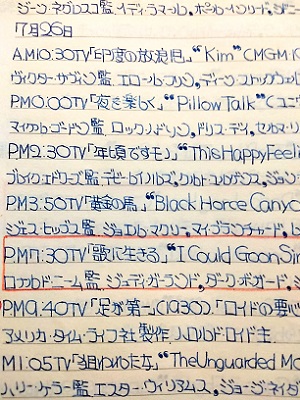 ジーン・ネグレスコ監.イディ・ラマール,ポール・ヘンリード,ジニ
7月26日
A.M10:30TV「印度の放浪児」“Kim”(CMGM・1
ヴィクター・サヴィン監.エロール・フリン,ディーン・ストックウェル
P.M0:00TV「夜を楽しく」“Pillow Talk”(ユニ
マイケル・ゴードン監.ロック・ハドソン,ドリス・デイ,セルマ・リ
P.M2:30TV「年頃ですモノ」“This Happy Feeli
ブレイク・エドワーズ監.デビー・レイノルズ,クルト・ユルゲンス,ジョン
P.M3:50TV「黄金の馬」“Black Horce Canyo
ジェス・ヒッブス監.ジョエル・マクリー,マイ・ブランチャード,レ
P.M7:30TV「歌に生きる」“I Could Goon Sin
ロナルド・ニーム監.ジュディ・ガーランド,ダーク・ボガード,ジ
P.M9.40TV「足が第一」(1930).「ロイドの要心
アメリカ・タイム・ライフ社製作.ハロルド・ロイド主
M1:05TV「狙われた女」“The Unguarded Mo
ハリー・ケラー監.エスター・ウィリアムス,ジョージ・ネイダ